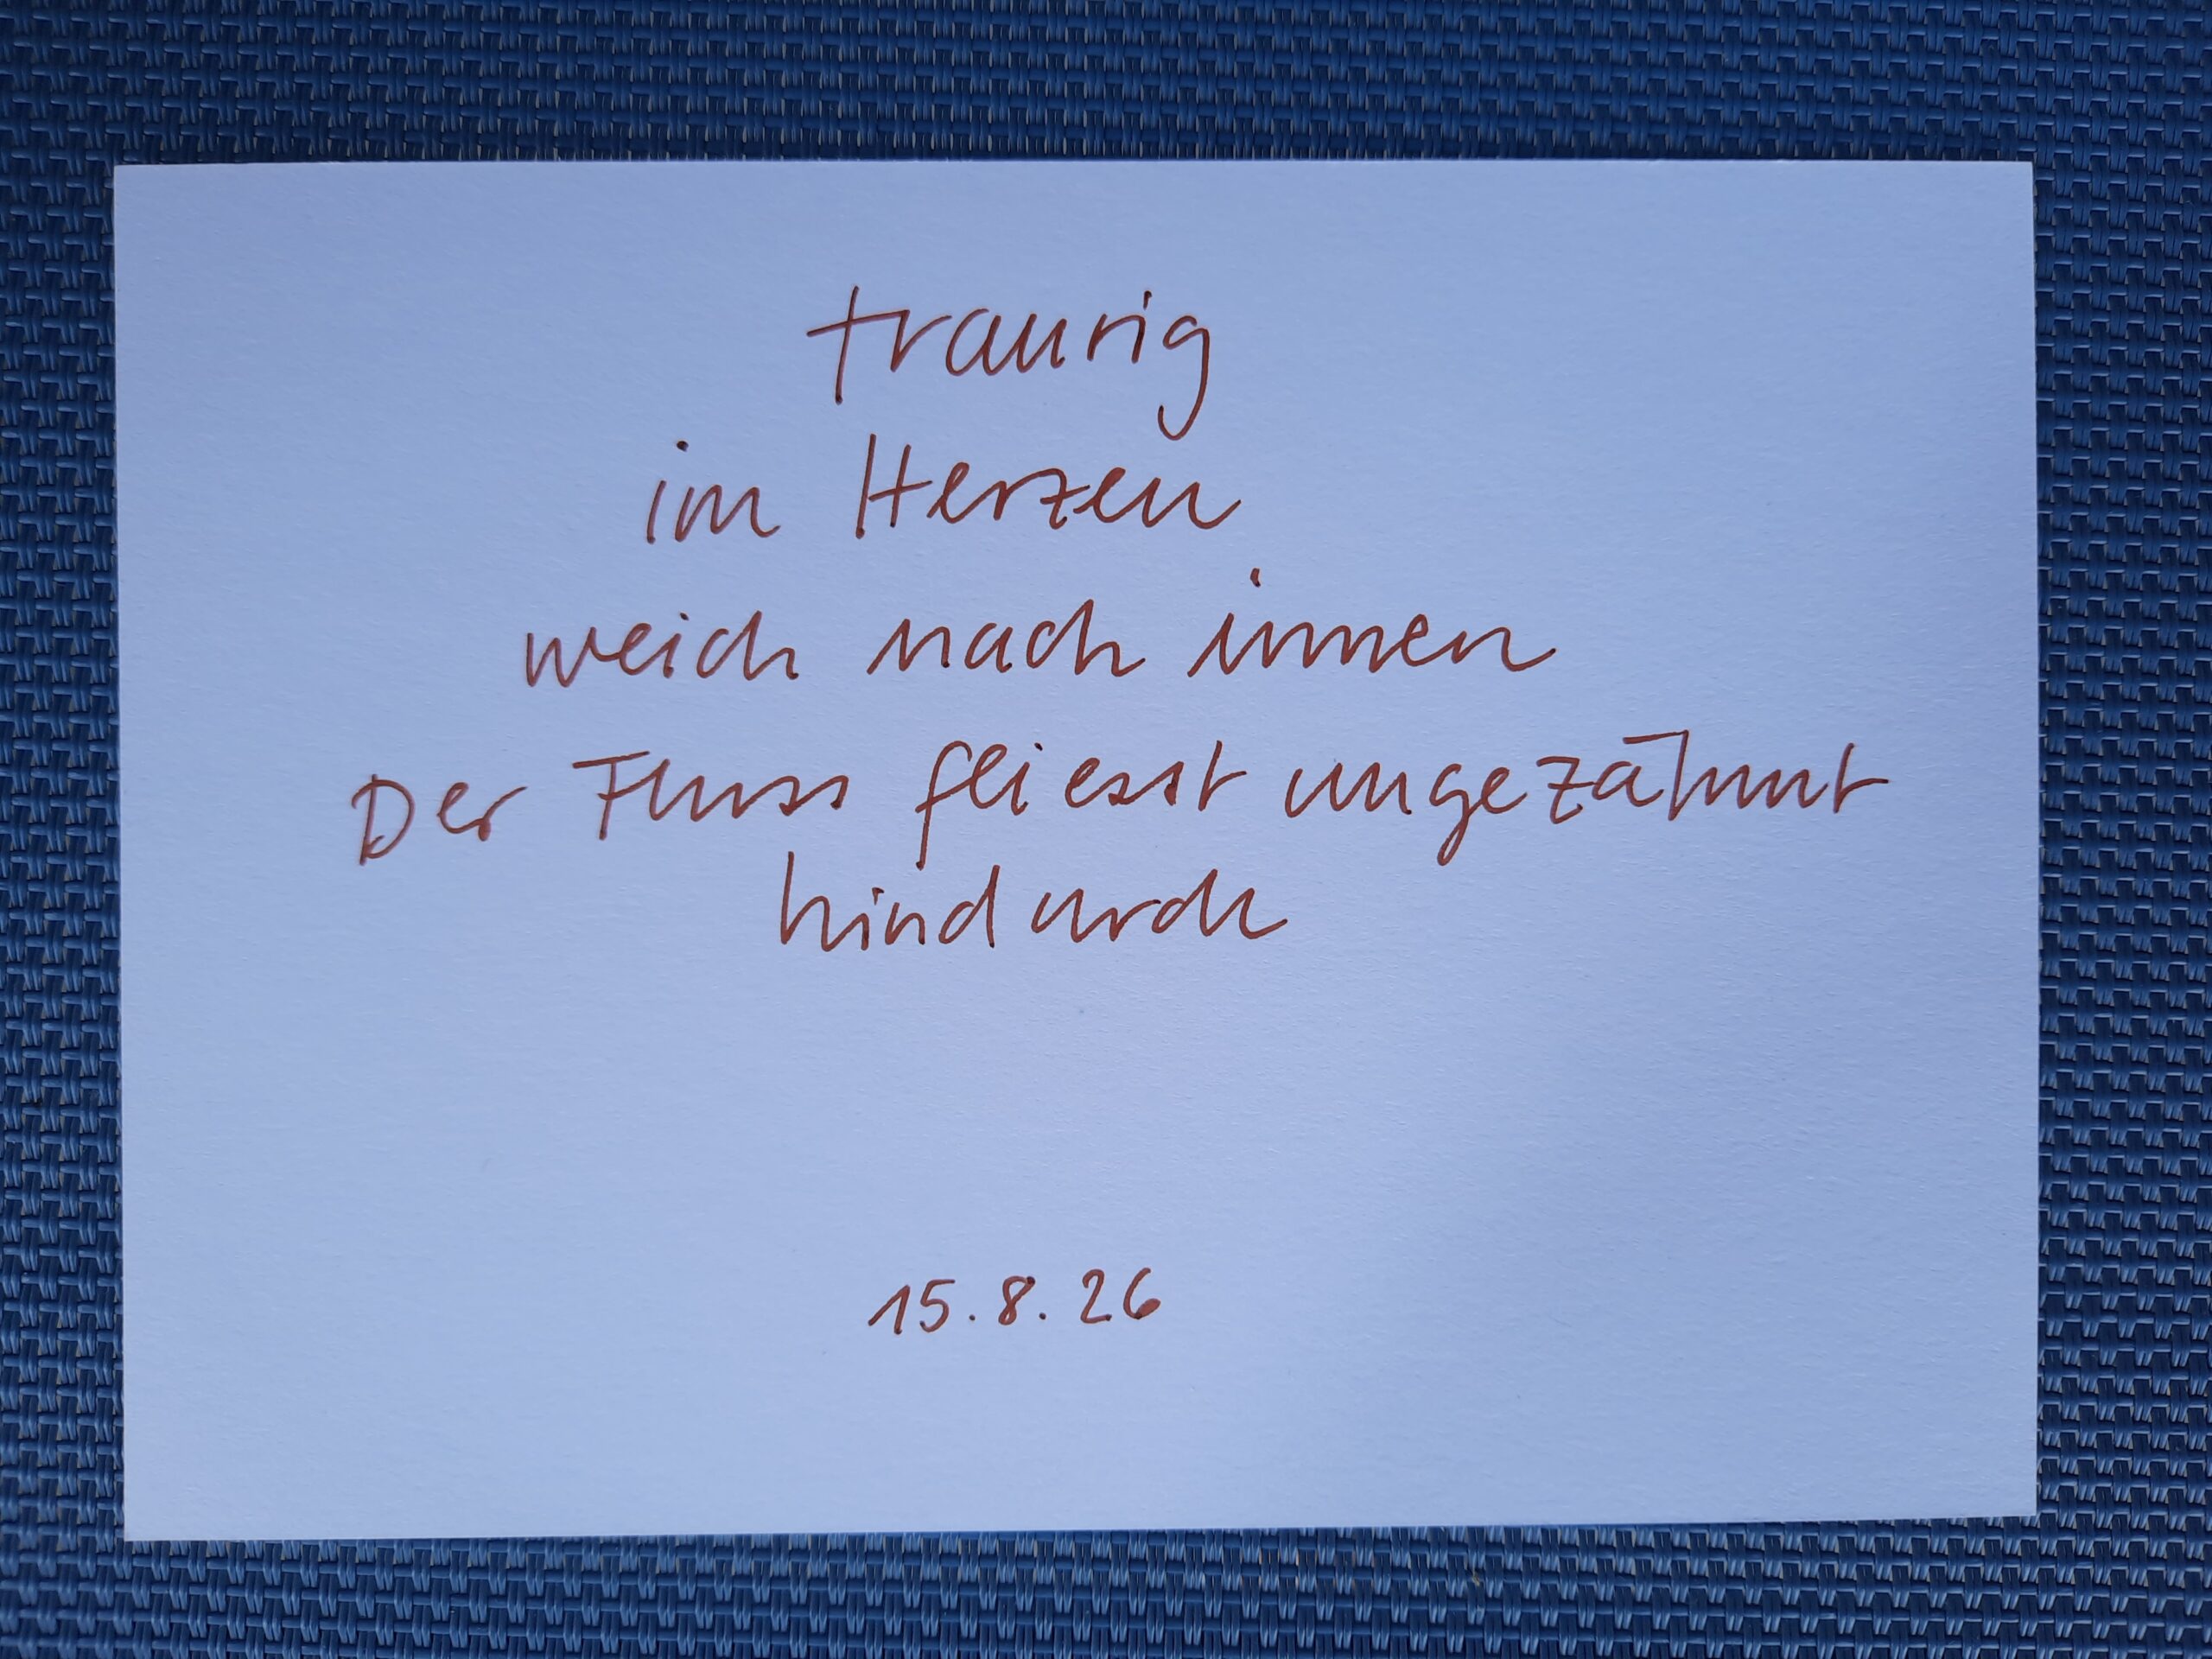 traurig
im Herzen
weich nach innen
Der Fluss fliesst ungezähmt
hindurch
15.8.26